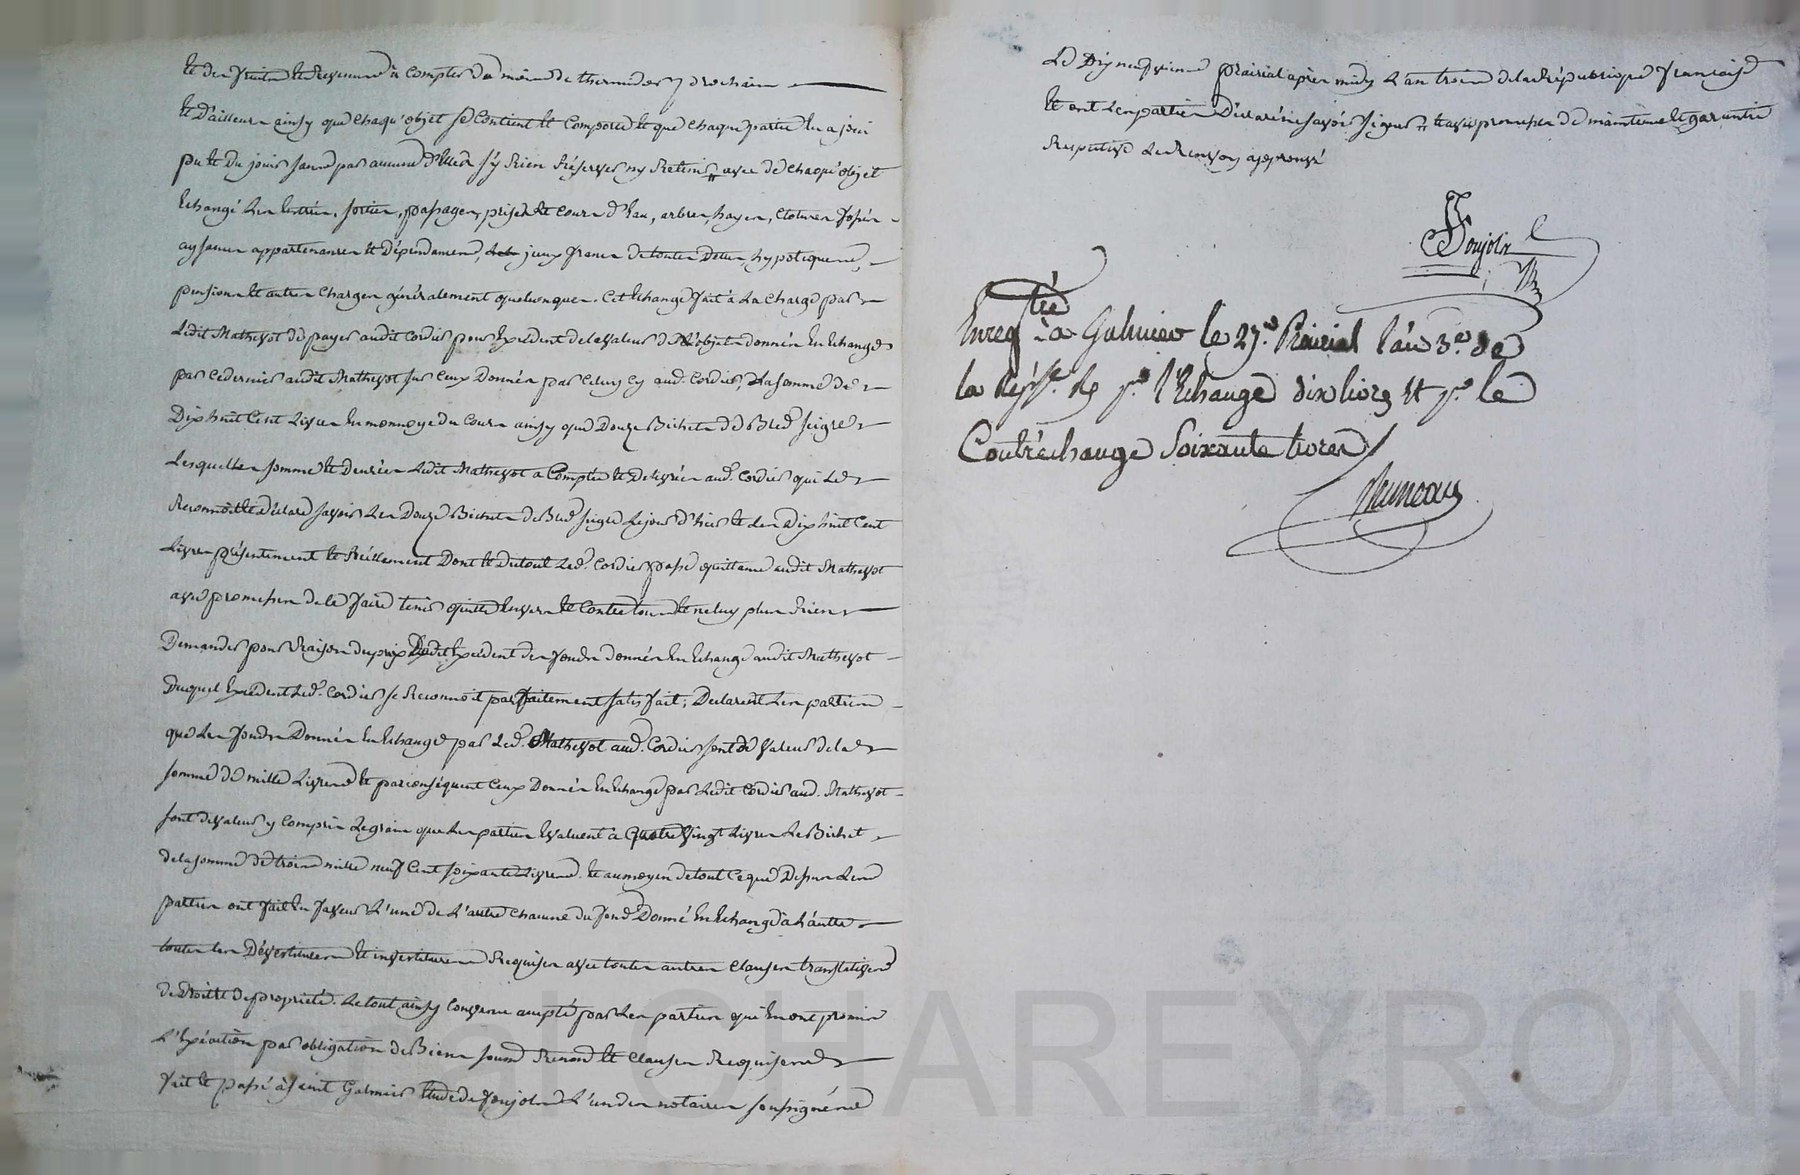 et des fruits et revenus à compter du mois de thermidor prochain
et d'ailleurs ainsy que chaqu'objet se contient et comporte et que chaque partie en a joui
pu et du jouir sans par aucune d'elles s'y rien réserver ny retenir avec de chaqu'objet
échangé les entrées, sorties, passages, prises et cours d'eau, arbres, hayes, clotures fossés
aysances appartenances et dépendances, iceux francs de toutes dettes hypoteques,
pensions et autres charges généralement quelconques. Cet échange fait à la charge par
ledit Mathevot de payer audit Cordier pour l'excédent de la valeur des objets donnés en échange
par ce dernier audit Mathevot sur ceux donnés par celuy cy aud. Cordier, la somme de
Dix huit cent livres en monnoye du cours ainsy que douze Bichets de Bled seigle
lesquelles somme et denrées ledit Mathevot a compté et délivrés aud. Cordier qui le
reconnoit et déclare savoir les douze Bichets de Bled seigle le jour d'hier et les dix huit cent
livres présentement et réellement dont et du tout led. Cordier passe quittance audit Mathevot
avec promesse de le faire tenir quitte envers et contre tous et ne luy plus rien
demander pour raison du prix dudit excédent des fonds donnés en échange audit Mathevot
duquel excédent led. Cordier se reconnoit parfaitement satisfait; Déclarent les parties
que les fonds donnés en échange par led. Mathevot aud. Cordier sont de valeur de la
somme de mille livres et par conséquent ceux donnés en échange par ledit Cordier aud. Mathevot
sont de valeur y compris le grain que les parties évaluent à quatre vingt livres le Bichet
de la somme de trois mille neuf cent soixante livres. et au moyen de tout ce que dessus les
parties ont fait en faveur l'une de l'autre chacune du fond donné en échange à l'autre
toutes les dévestitures et investitures requises avec toutes autres clauses translatives
de droits de propriété. Le tout ainsy convenu accepté par les parties qui en ont promis
l'exécution par obligation de Biens soumis renon et clauses requises
fait et passé à saint Galmier étude de Poujols l'un des notaires soussignés
Le Dix neuf prairial après midy l'an trois de la république française
et ont les parties déclaré ne savoir signer avec promesse de maintenue et garantie
respective le renvoy approuvé
Enregtré a Galmier le 27e. Prairial l'an 3e. de
la Répe. Rç pr. l'Echange dix livres et pr. le
Contréchange Soixante trois
Bruneau